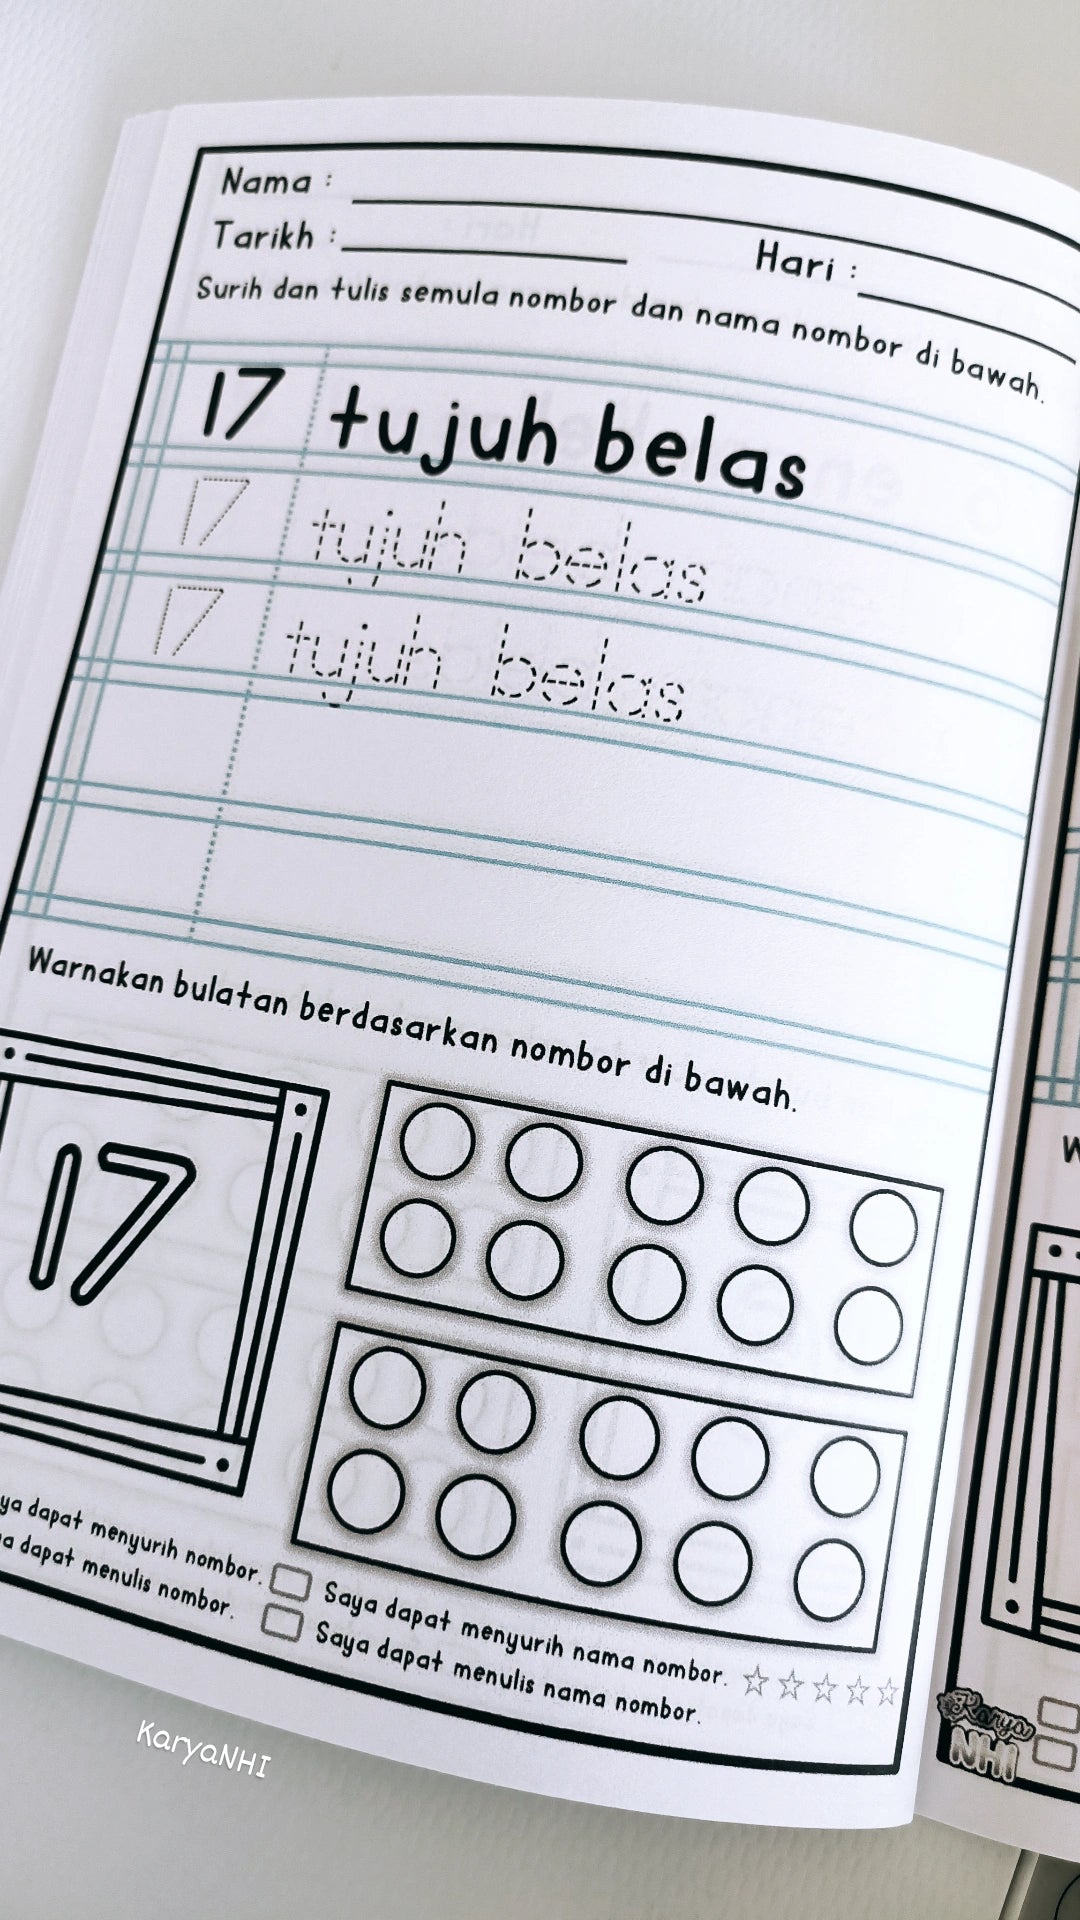 Nama :
Tarikh :
Hari :
Surih dan tulis semula nombor dan nama nombor di bawah.
17 tujuh belas
17 tujuh belas
17 tujuh belas
Warnakan bulatan berdasarkan nombor di bawah.
17
dapat menyurih nombor.
Saya dapat menyurih nama nombor.
dapat menulis nombor.
Saya dapat menulis nama nombor.
KaryaNHI
Karya
NHI